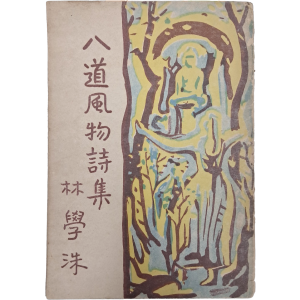 八道風物詩集
林學洙